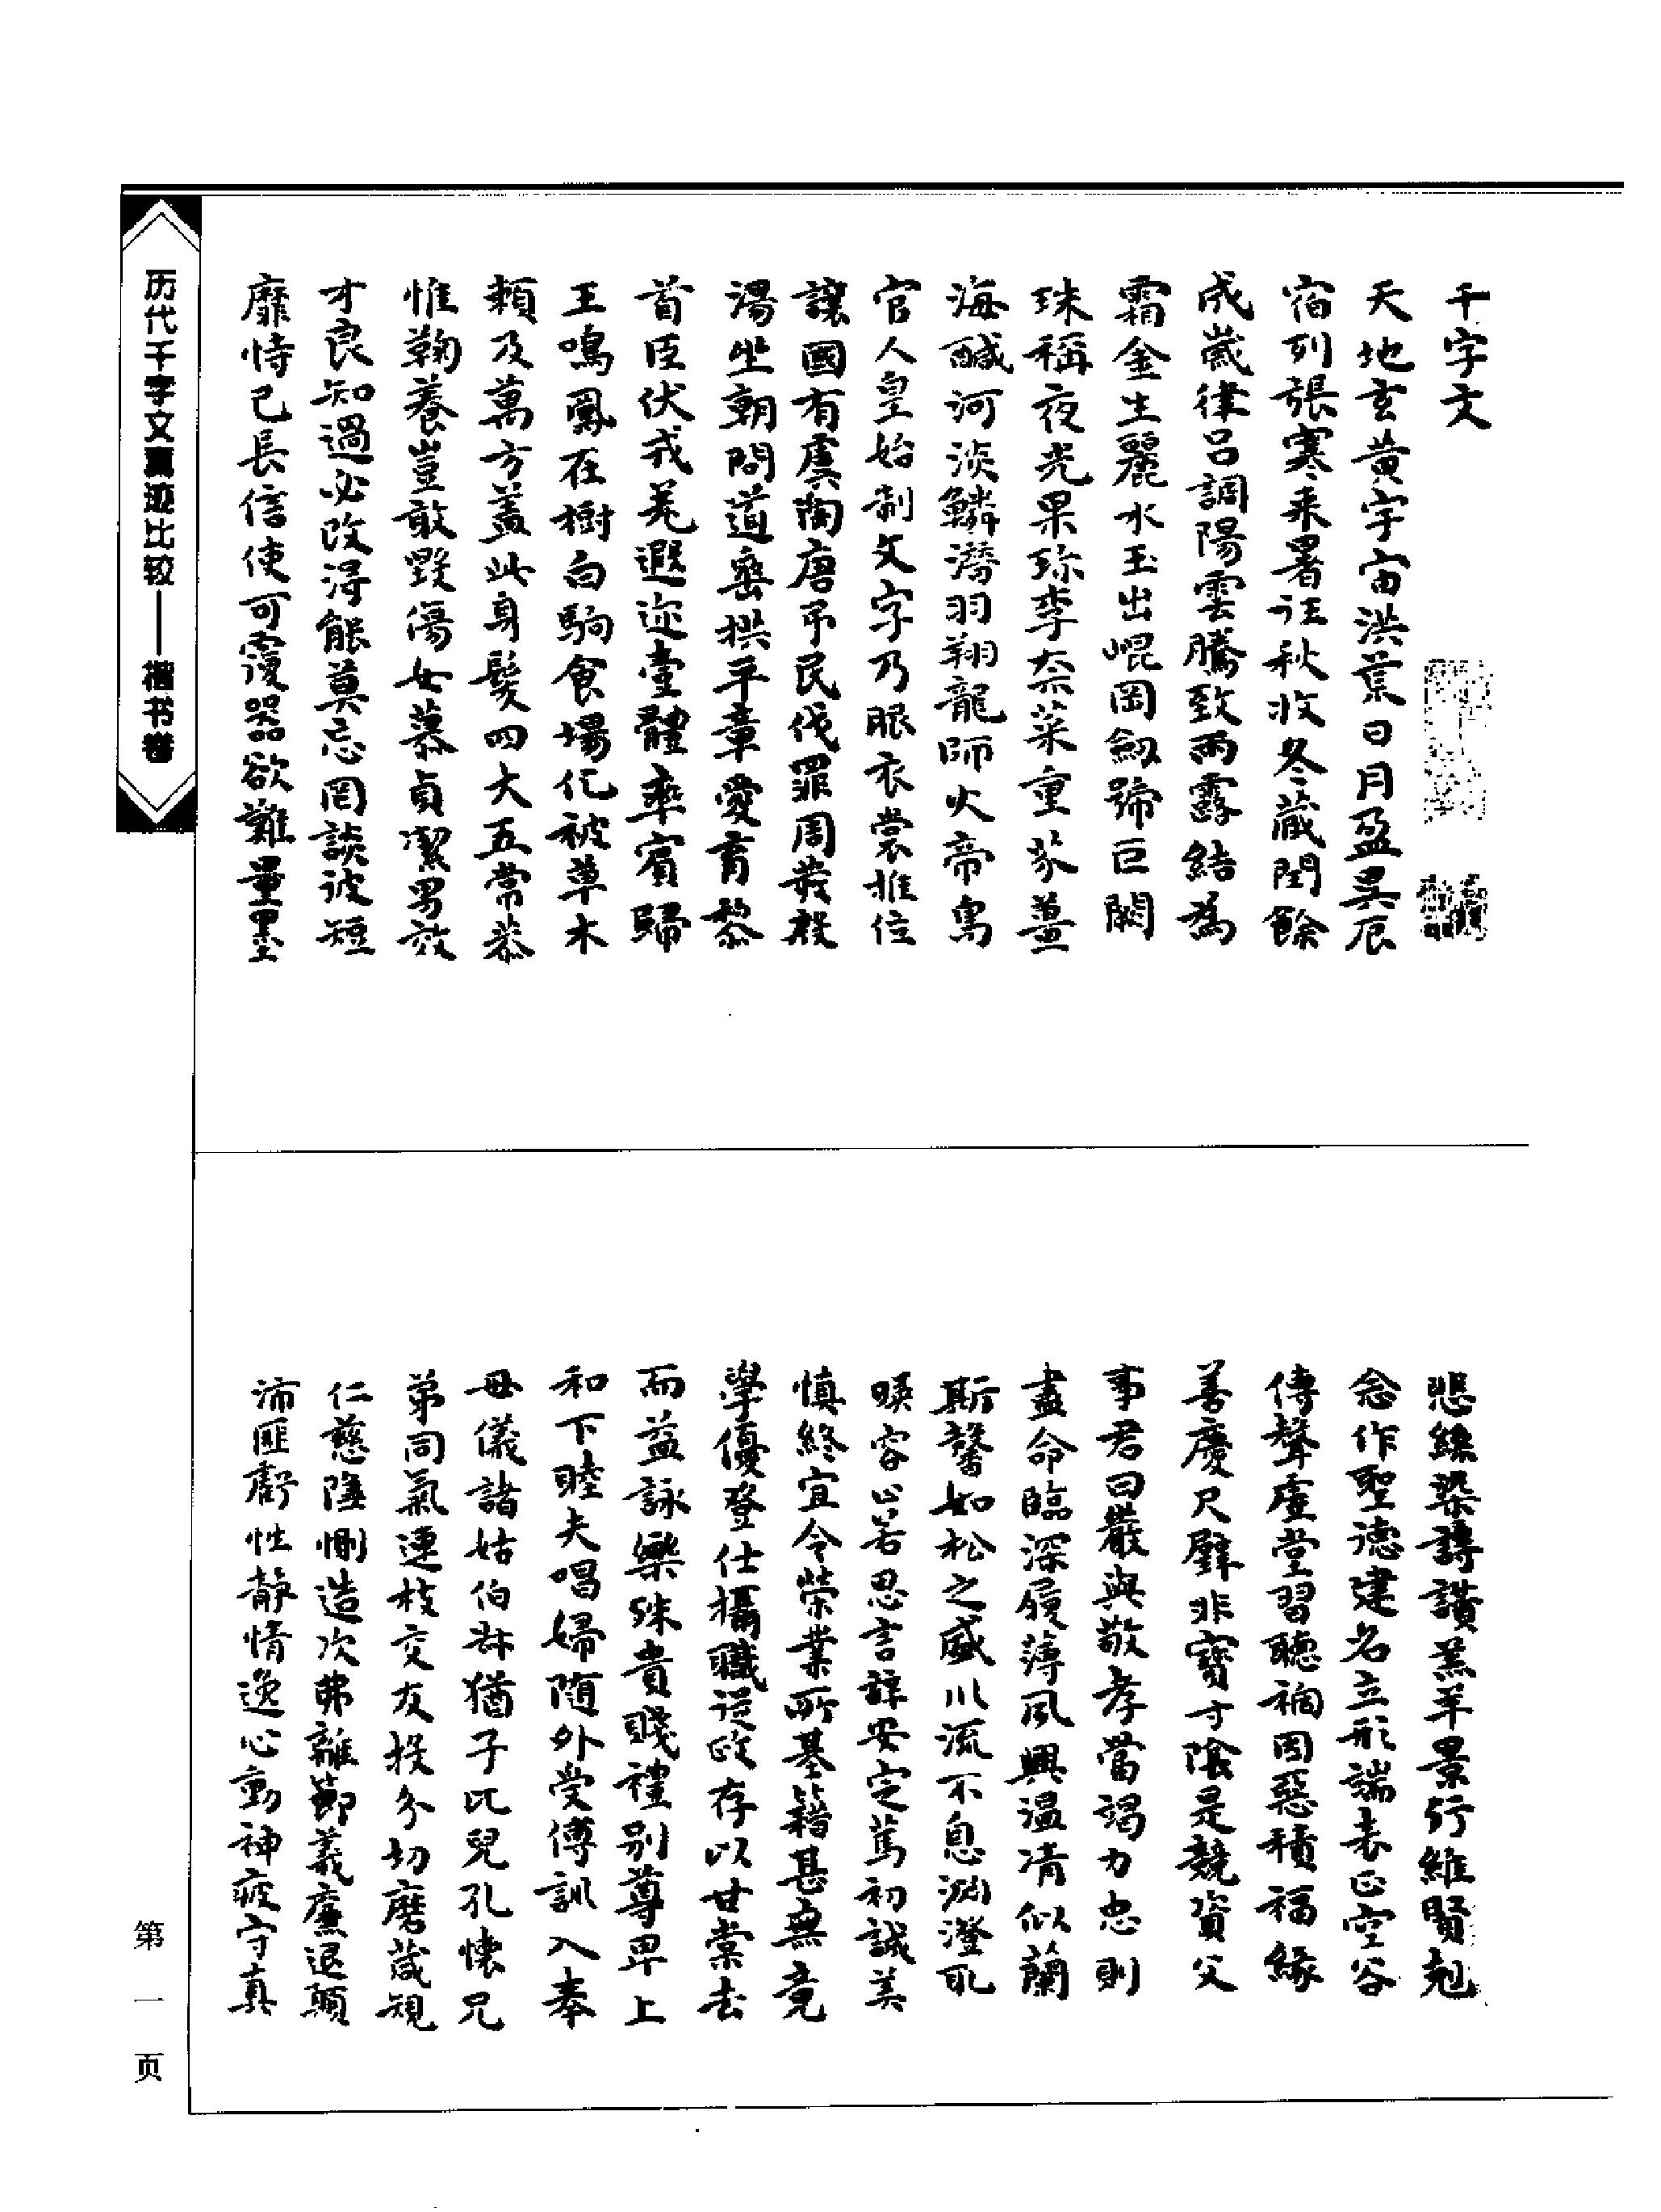 千字文
天地玄黄宇宙洪荒日月盈昃辰
宿列張寒来暑往秋收冬蔵閏餘
成歲律吕調陽雲騰致雨露結為
霜金生麗水玉出崐岡劒號巨闕
珠稱夜光果珎李柰菜重芥薑
海醎河淡鱗潛羽翔龍師火帝鳥
官人皇始制文字乃服衣裳推位
讓國有虞陶唐吊民伐罪周發殷
湯坐朝問道垂拱平章愛育黎
首臣伏戎羌遐迩壹體率賓歸
王鳴鳳在樹白駒食場化被草木
頼及萬方盖此身髮四大五常恭
惟鞠養豈敢毀傷女慕貞潔男效
才良知過必改得能莫忘罔談彼短
靡恃己長信使可覆器欲難量墨
悲絲染詩讚羔羊景行維賢剋
念作聖德建名立形端表正空谷
傳聲虛堂習聽禍因惡積福緣
善慶尺璧非寶寸陰是競資父
事君曰嚴與敬孝當竭力忠則
盡命臨深履薄夙興溫凊似蘭
斯馨如松之盛川流不息渊澄取
暎容止若思言辭安定篤初誠美
慎終宜令榮業所基籍甚無竟
學優登仕攝職從政存以甘棠去
而益詠樂殊貴賤禮别尊卑上
和下睦夫唱婦随外受傅訓入奉
母儀諸姑伯叔猶子比兒孔懷兄
弟同氣連枝交友投分切磨箴規
仁慈隱惻造次弗離節義廉退顛
沛匪虧性靜情逸心動神疲守真
历代千字文真迹比较——楷书卷
第一页